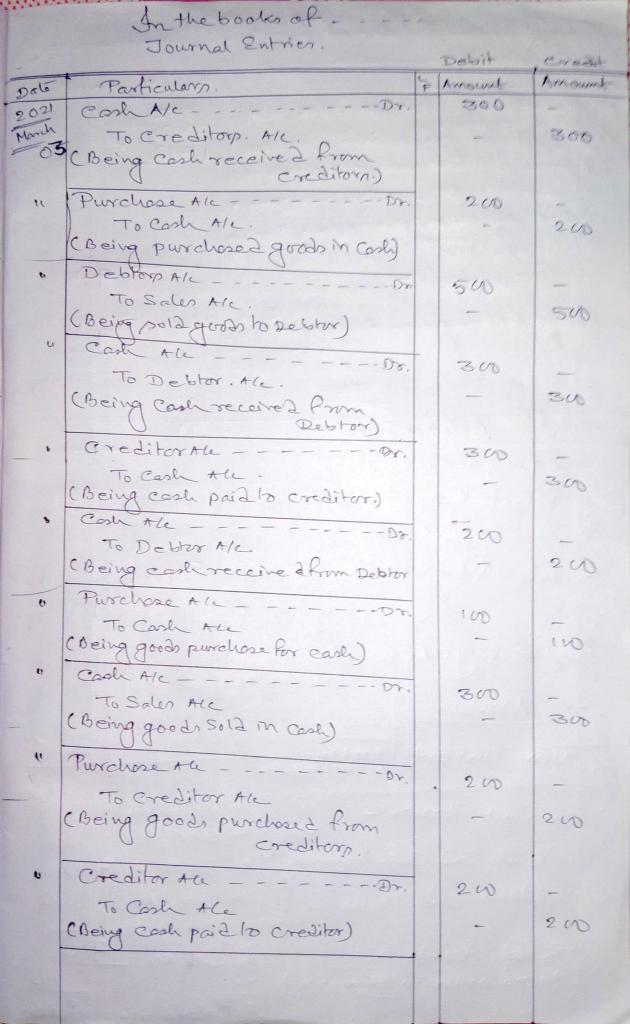 In the books of - - - - -
Journal Entries.
Debit Credit
Date Particulars. L F Amount Amount
2021 Cash A/c - - - - - - - - - - Dr. 300 -
March To Creditors. A/c. - 300
03 (Being Cash received from
Creditors.)
" Purchase A/c - - - - - - - - Dr. 200 -
To Cash A/c. - 200
(Being purchased goods in Cash)
" Debtors A/c - - - - - - - - - Dr 500 -
To Sales A/c. - 500
(Being sold goods to Debtor)
" Cash A/c - - - - - - - - Dr. 300 -
To Debtor. A/c. - 300
(Being Cash received from
Debtor)
" Creditor A/c - - - - - - - Dr. 300 -
To Cash A/c. - 300
(Being cash paid to creditor.)
" Cash A/c - - - - - - - - - Dr. 200 -
To Debtor A/c. - 200
(Being cash received from Debtor
" Purchase A/c - - - - - - - Dr. 100 -
To Cash A/c - 100
(Being goods purchase for cash)
" Cash A/c - - - - - - - - Dr. 300 -
To Sales A/c - 300
(Being goods Sold in Cash)
" Purchase A/c - - - - - - - Dr. 200 -
To Creditor A/c - 200
(Being goods purchased from
Creditors.
" Creditor A/c - - - - - - - Dr. 200 -
To Cash A/c - 200
(Being cash paid to Creditor)